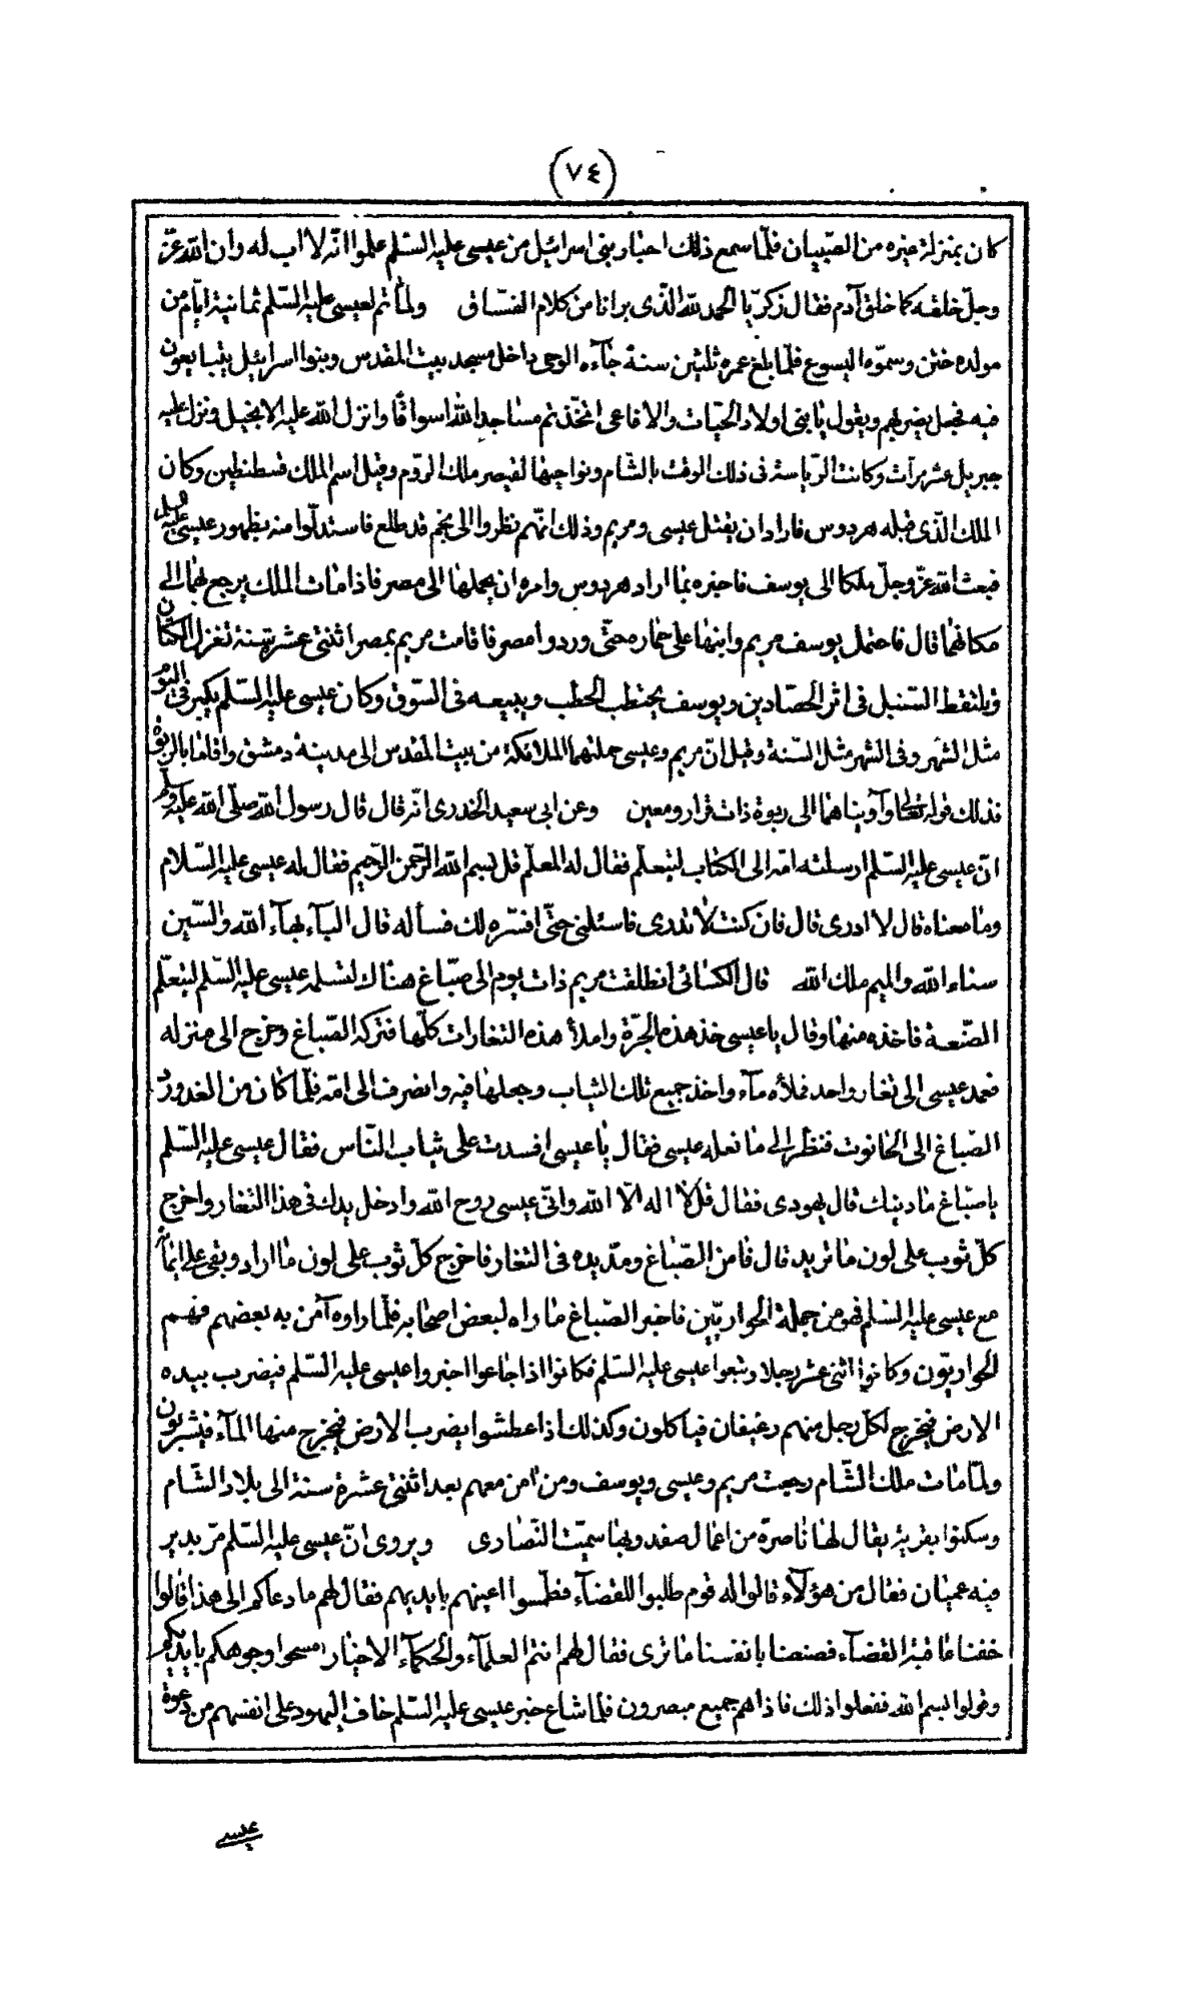 (٧٤)
كان بمنزلة غيره من الصّبيان فلمّا سمع ذلك احبار بنى اسرائيل من عيسى عليه السّلم علموا انّه لا اب له وان الله عزّ
وجلّ خلقه كما خلق آدم فقال زكريّا الحمد لله الّذى برانا من كلام الفسّاق ولمّا تم لعيسى عليه السّلم ثمانية ايّام من
مولده ختن وسمّوه اليسوع فلمّا بلغ عمره ثلثين سنة جآءه الوحى داخل مسجد بيت المقدس وبنوا اسرائيل يتبايعون
فيه فجعل يضربهم ويقول يا بنى اولاد الحيّات والافاعى اتّخذتم مساجد الله اسواقًا وانزل الله عليه الانجيل ونزل عليه
جبريل عشر مرات وكانت الرّياسة فى ذلك الوقت بالشّام ونواحيها لقيصر ملك الرّوم وقيل اسم الملك قسطنطين وكان
الملك الّذى قبله هردوس فاراد ان يقتل عيسى ومريم وذلك انّهم نظروا الى نجم قد طلع فاستدلّوا منه بظهور عيسى عليه السلم
فبعث الله عزّ وجلّ ملكا الى يوسف فاخبره بما اراد هردوس وامره ان يحملها الى مصر فاذا مات الملك يرجع بهما الى
مكانهما قال فاحتمل يوسف مريم وابنها على حماره حتّى وردوا مصر فاقامت مريم بمصر اثنتى عشر سنة تغزل الكتّان
وتلتقط السّنبل فى اثر الحصّادين ويوسف يحتطب الحطب ويبيعه فى السّوق وكان عيسى عليه السّلم يكبر فى اليوم
مثل الشهر وفى الشهر مثل السّنة وقيل انّ مريم وعيسى حملتهما الملائكة من بيت المقدس الى مدينة دمشق واقاما بالربوة
فذلك قوله تعالى وآويناهما الى ربوة ذات قرار ومعين وعن ابى سعيد الخدرى انّه قال قال رسول الله صلّى الله عليه وسلّم
انّ عيسى عليه السّلم ارسلته امّه الى الكتاب ليتعلّم فقال له المعلّم قل بسم الله الرّحمن الرّحيم فقال له عيسى عليه السّلام
وما معناه قال لا ادرى قال فان كنت لا تدرى فاسئلنى حتّى افسّره لك فسأله قال البآء بهآء الله والسّين
سناء الله والميم ملك الله قال الكسائى انطلقت مريم ذات يوم الى صبّاغ هناك لتسلم عيسى عليه السّلم ليتعلّم
الصّنعة فاخذه منها وقال يا عيسى خذ هذه الجرّة واملأ هذه التغارات كلّها فتركه الصّباغ وخرج الى منزله
فعمد عيسى الى تغار واحد فملأه مآء واخذ جميع تلك الثياب وجعلها فيه وانصرف الى امّه فلمّا كان من الغد ورد
الصّباغ الى الحانوت فنظر الى ما فعله عيسى فقال يا عيسى افسدت على ثياب النّاس فقال عيسى عليه السّلم
يا صبّاغ ما دينك قال يهودى فقال قل لا اله الّا الله وانّى عيسى روح الله وادخل يدك فى هذا التغار واخرج
كلّ ثوب على لون ما تريد قال فامن الصّباغ ومدّ يده فى التغار فاخرج كلّ ثوب على لون ما اراد وبقى على ايمانه
مع عيسى عليه السّلم فهو من جملة الحواريّين فاخبر الصّباغ ما راه لبعض اصحابه فلمّا راوه آمن به بعضهم فهم
الحواريّون وكانوا اثنى عشر رجلا وتبعوا عيسى عليه السّلم فكانوا اذا جاعوا اخبروا عيسى عليه السّلم فيضرب بيده
الارض فيخرج لكلّ رجل منهم رغيفان فياكلون وكذلك اذا عطشوا يضرب الارض فيخرج منها المآء فيشربون
ولمّا مات ملك الشّام رجعت مريم وعيسى ويوسف ومن آمن معهم بعد اثنتى عشرة سنة الى بلاد الشّام
وسكنوا بقرية يقال لها ناصرة من اعمال صفد وبها سمّيت النّصارى ويروى انّ عيسى عليه السّلم مرّ بدير
فيه عميان فقال من هؤلآء قالوا له قوم طلبوا للقضآء فطمسوا اعينهم بايديهم فقال لهم ما دعاكم الى هذا قالوا
خفنا عاقبة القضآء فصنعنا بانفسنا ما ترى فقال لهم انتم العلمآء والحكمآء الاخيار امسحوا وجوهكم بايديكم
وقولوا بسم الله ففعلوا ذلك فاذا هم جميع مبصرون فلما شاع خبر عيسى عليه السّلم خاف اليهود على انفسهم من دعوة
عيسى